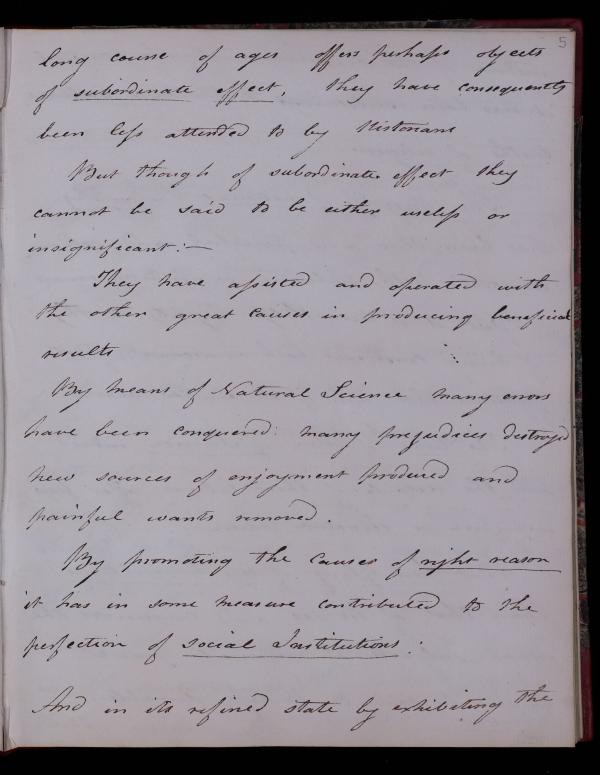 5
long course of ages offers perhaps objects
of subordinate effect, they have consequently
been less attended to by Historians
But though of subordinate effect they
cannot be said to be either useless or
insignificant:—
They have assisted and operated with
the other great causes in producing beneficial
results
By means of Natural Science many errors
have been conquered: many prejudices destroyed
new sources of enjoyment produced and
painful wants removed.
By promoting the causes of right reason
it has in some measure contributed to the
perfection of social Institutions:
And in its refined state by exhibiting the